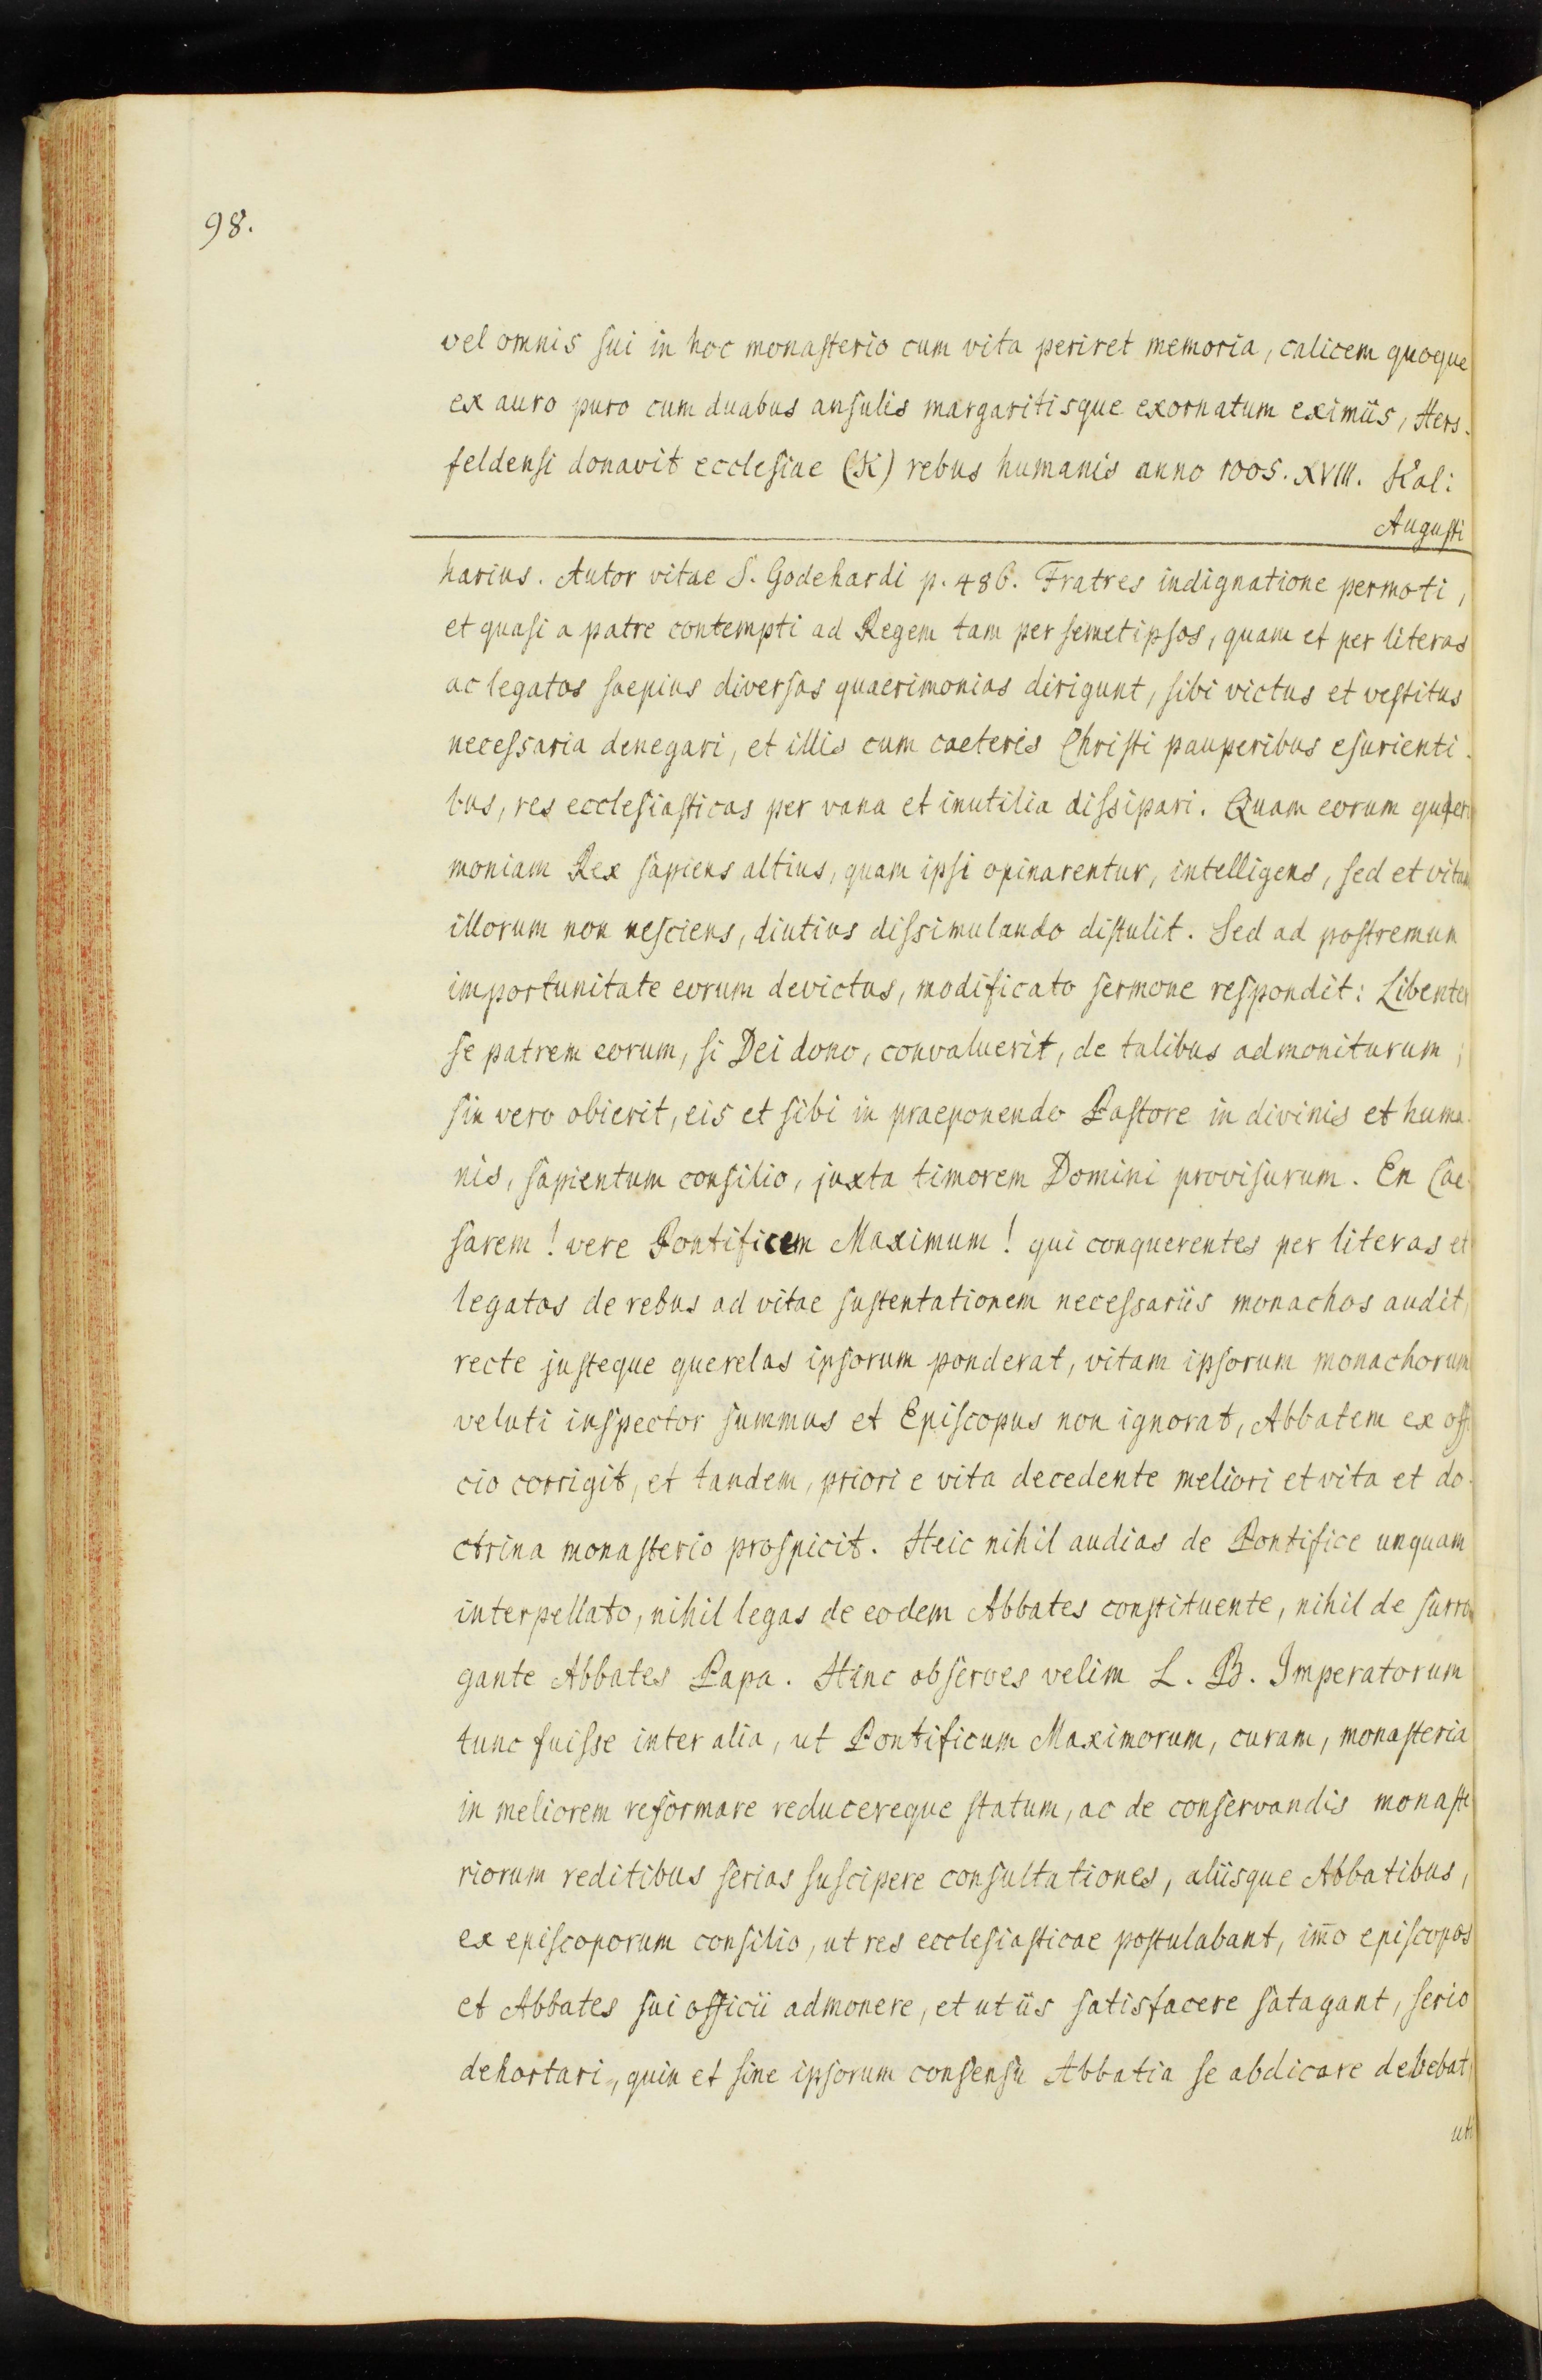 98.
vel omnis sui in hoc monasterio cum vita periret memoria, calicem quoque
ex auro puro cum duabus ansulis margaritisque exornatum eximiis, Hers-
feldensi donavit ecclesiae (K) rebus humanis anno 1005. XVIII. Kal:
Augusti
harius. Autor vitae S. Godehardi p. 486. Fratres indignatione permoti,
et quasi a patre contempti ad Regem tam per semetipsos, quam et per literas
ac legatos saepius diversas quaerimonias dirigunt, sibi victus et vestitus
necessaria denegari, et illis cum caeteris Christi pauperibus esurienti-
bus, res ecclesiasticas per vana et inutilia dissipari. Quam eorum quaeri
moniam Rex sapiens altius, quam ipsi opinarentur, intelligens, sed et vitam
illorum non nesciens, diutius dissimulando distulit. Sed ad postremum
importunitate eorum devictus, modificato sermone respondit: Libenter
se patrem eorum, si Dei dono, convaluerit, de talibus admoniturum;
sin vero obierit, eis et sibi in praeponendo Pastore in divinis et huma-
nis, sapientum consilio, juxta timorem Domini provisurum. En Cae-
sarem! vere Pontificem Maximum! qui conquerentes per literas et
legatos de rebus ad vitae sustentationem necessariis monachos audit,
recte justeque querelas ipsorum ponderat, vitam ipsorum monachorum
veluti inspector summus et Episcopus non ignorat, Abbatem ex offi
cio corrigit, et tandem, priori e vita decedente meliori et vita et do-
ctrina monasterio prospicit. Heic nihil audias de Pontifice unquam
interpellato, nihil legas de eodem Abbates constituente, nihil de surro
gante Abbates Papa. Hinc observes velim L. B. Imperatorum
tunc fuisse inter alia, ut Pontificum Maximorum, curam, monasteria
in meliorem reformare reducereque statum, ac de conservandis monaste
riorum reditibus serias suscipere consultationes, aliisque Abbatibus,
ex episcoporum consilio, ut res ecclesiasticae postulabant, im̄o episcopos
et Abbates sui officii admonere, et ut iis satisfacere satagant, serio
dehortari, quin et sine ipsorum consensu Abbatia se abdicare debebat,
uti